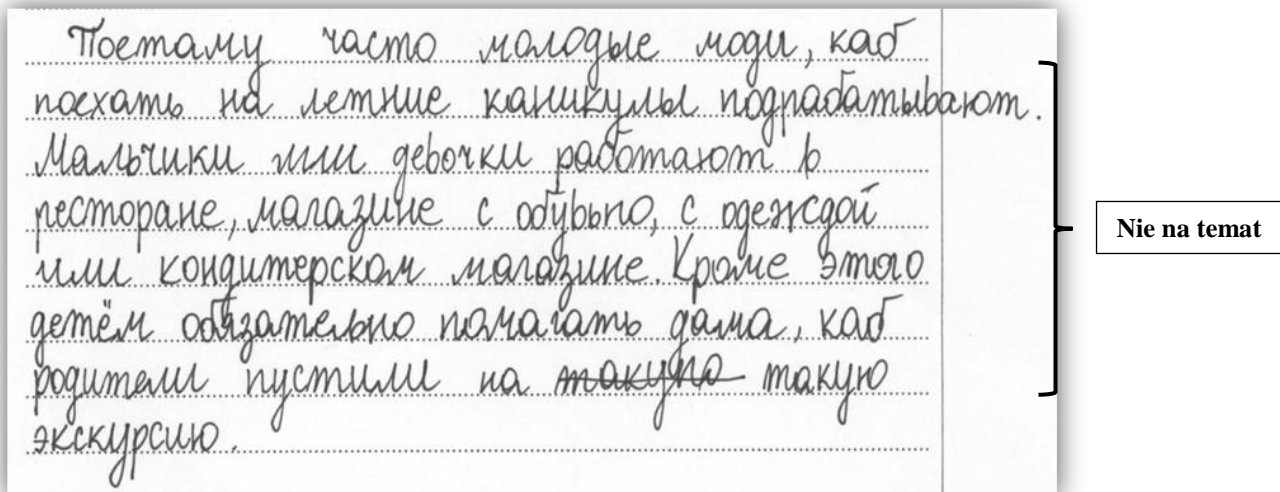 Поетаму часто молодые моди, каб
поехать на летние каникулы подрабатывают.
Мальчики или девочки работают в
ресторане, магазине с обувью, с одеждой
или кондитерском магазине. Кроме этого
детём обязательно помагать дама, каб
родители пустили на такую такую
экскурсию.
Nie na temat